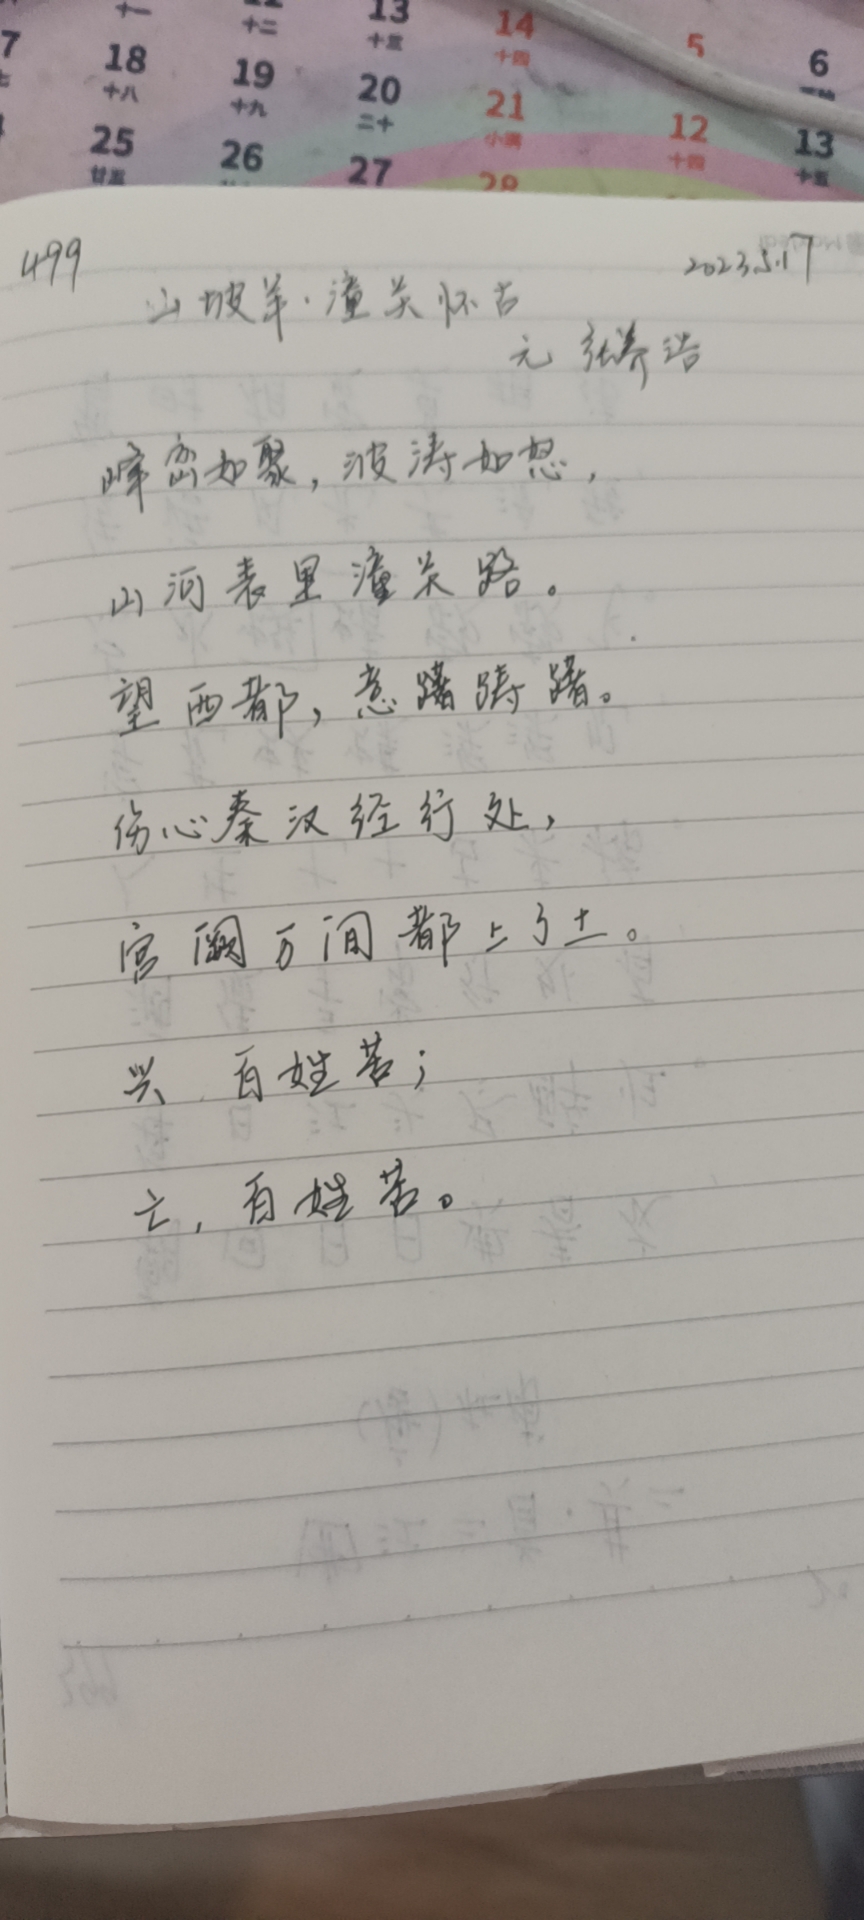 十一 十二 13 14
十三 十四 5 6
18 19 20 21
十八 十九 二十 小满 12 13
25 26 27 28 十四 十五
廿五
499 2023.5.17
山坡羊·潼关怀古
元 张养浩
峰峦如聚,波涛如怒,
山河表里潼关路。
望西都,意躇踌躇。
伤心秦汉经行处,
宫阙万间都上了土。
兴 百姓苦;
亡,百姓苦。